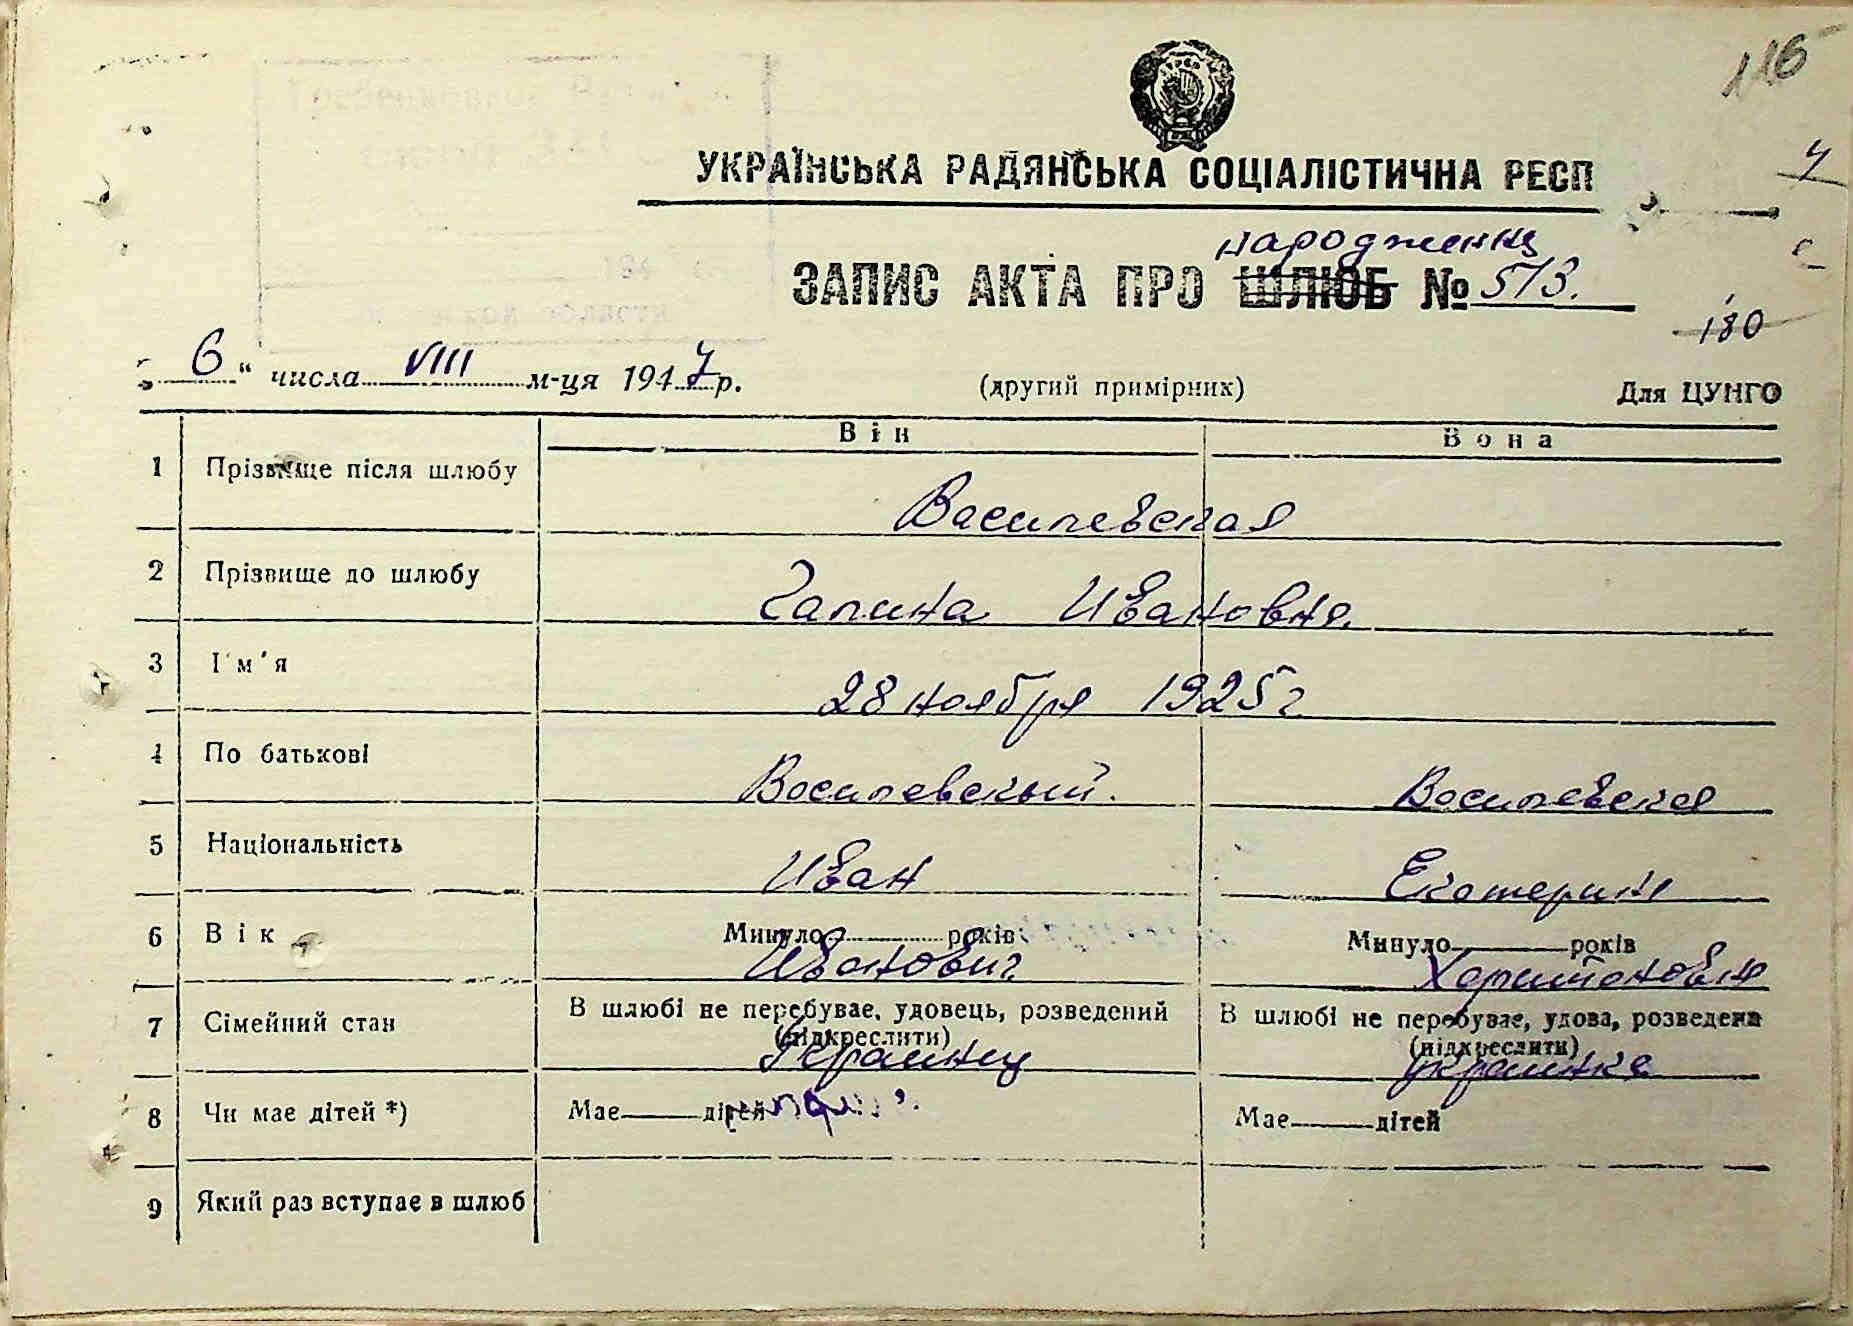 116
УКРАЇНСЬКА РАДЯНСЬКА СОЦІАЛІСТИЧНА РЕСП
4
народження
ЗАПИС АКТА ПРО ШЛЮБ № 513.
180
„ 6 “ числа VIII м-ця 1947 р. (другий примірник) Для ЦУНГО
Він Вона
1 Прізвище після шлюбу Василевская
2 Прізвище до шлюбу Галина Ивановна.
3 Ім'я 28 ноября 1925 г
4 По батькові Василевский. Василевская
5 Національність Иван Екатерин
6 Вік Минуло років Минуло років
Иванович Харитоновн
7 Сімейний стан В шлюбі не перебуває, удовець, розведений В шлюбі не перебуває, удова, розведена
(підкреслити) (підкреслити)
Украинец украинка
8 Чи має дітей *) Має дітей Має дітей
9 Який раз вступає в шлюб